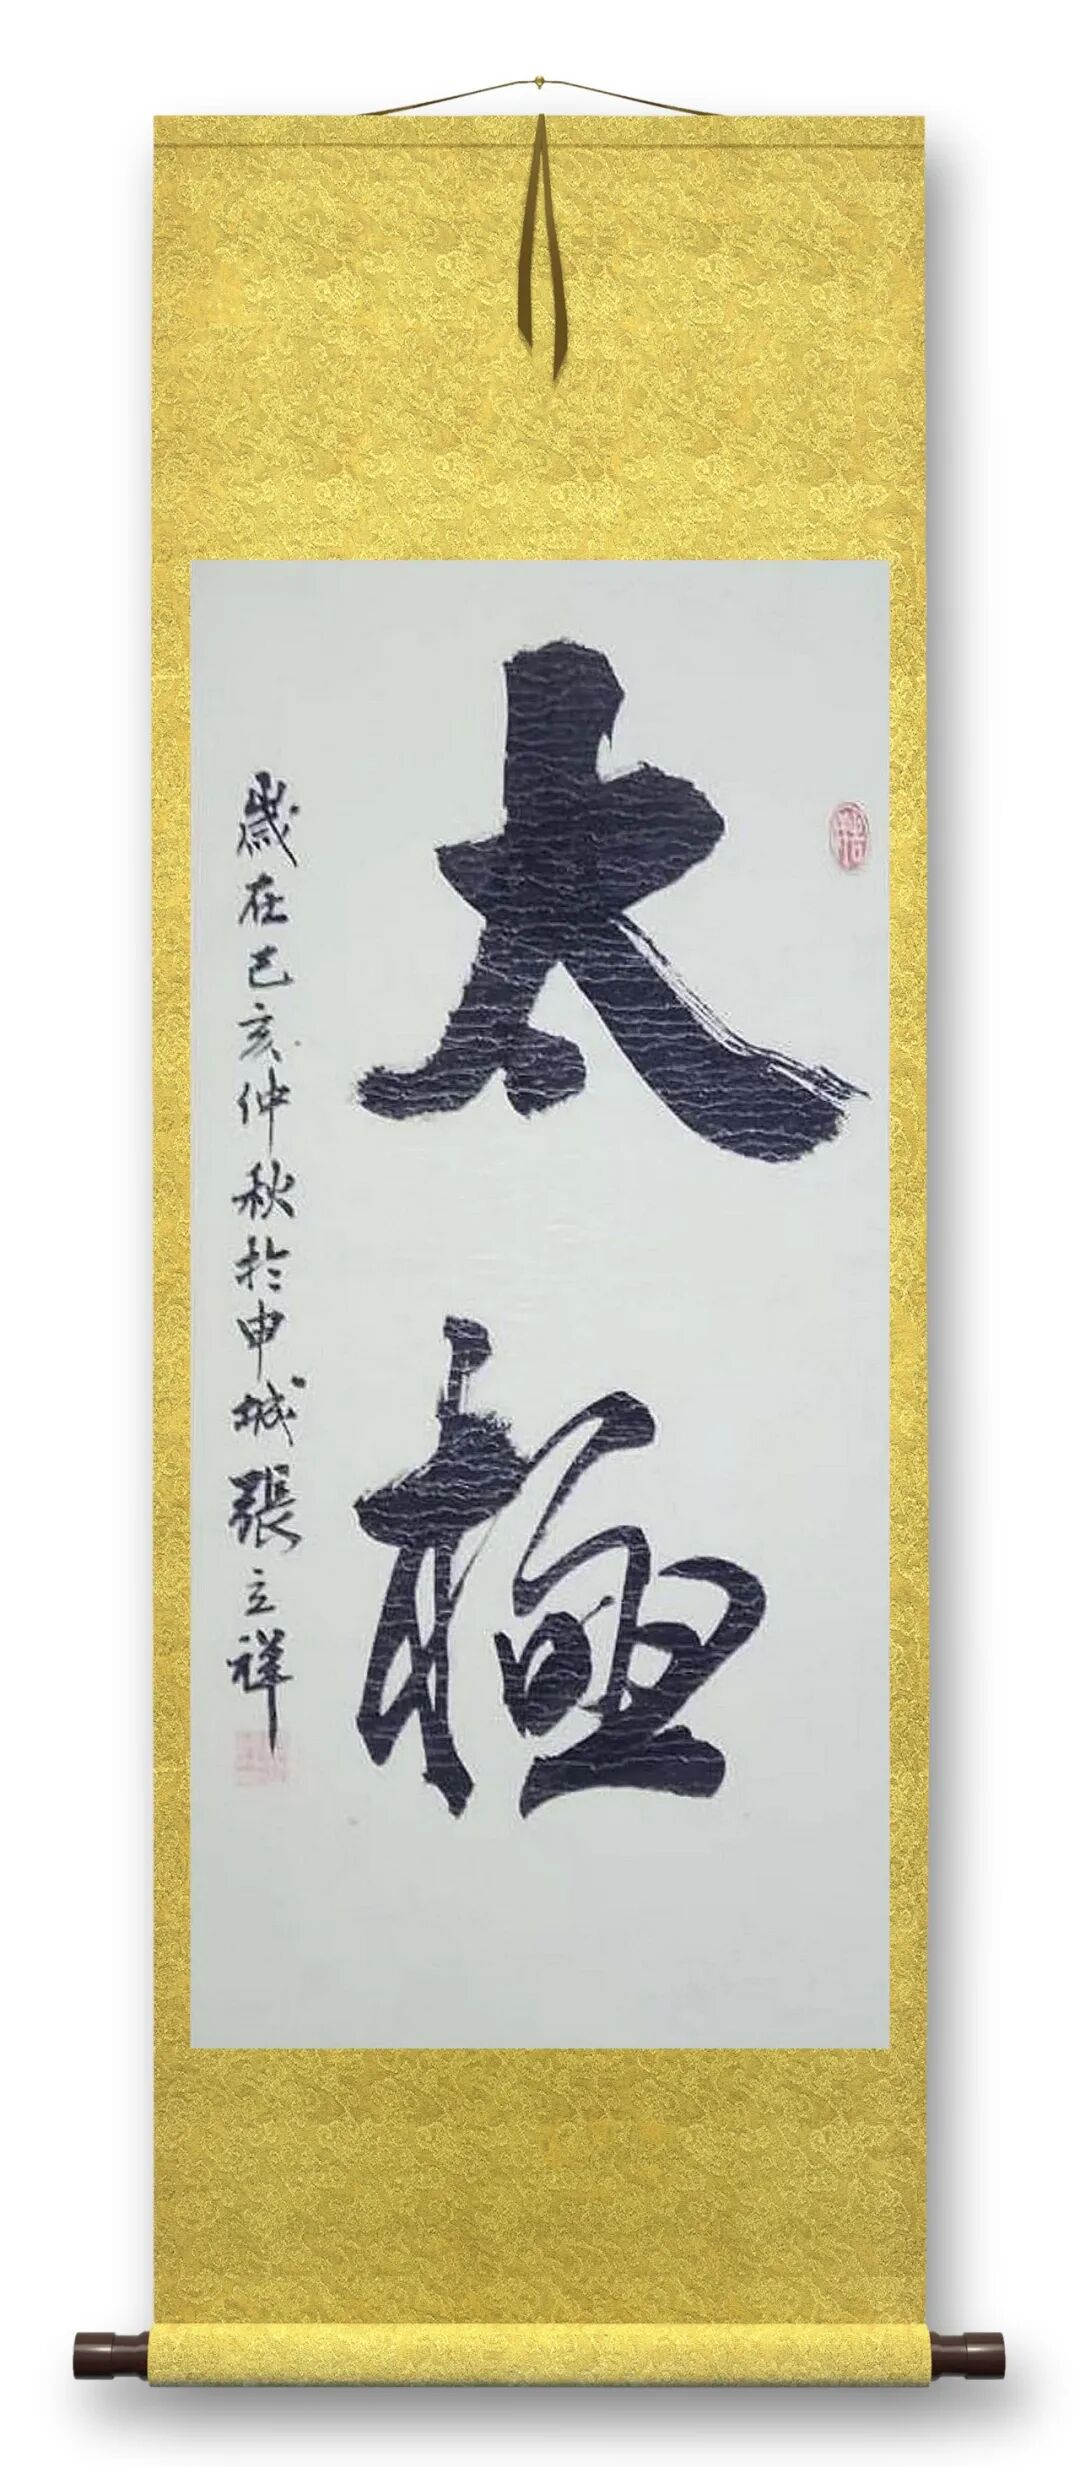 太極
歲在己亥仲秋於申城張立祥